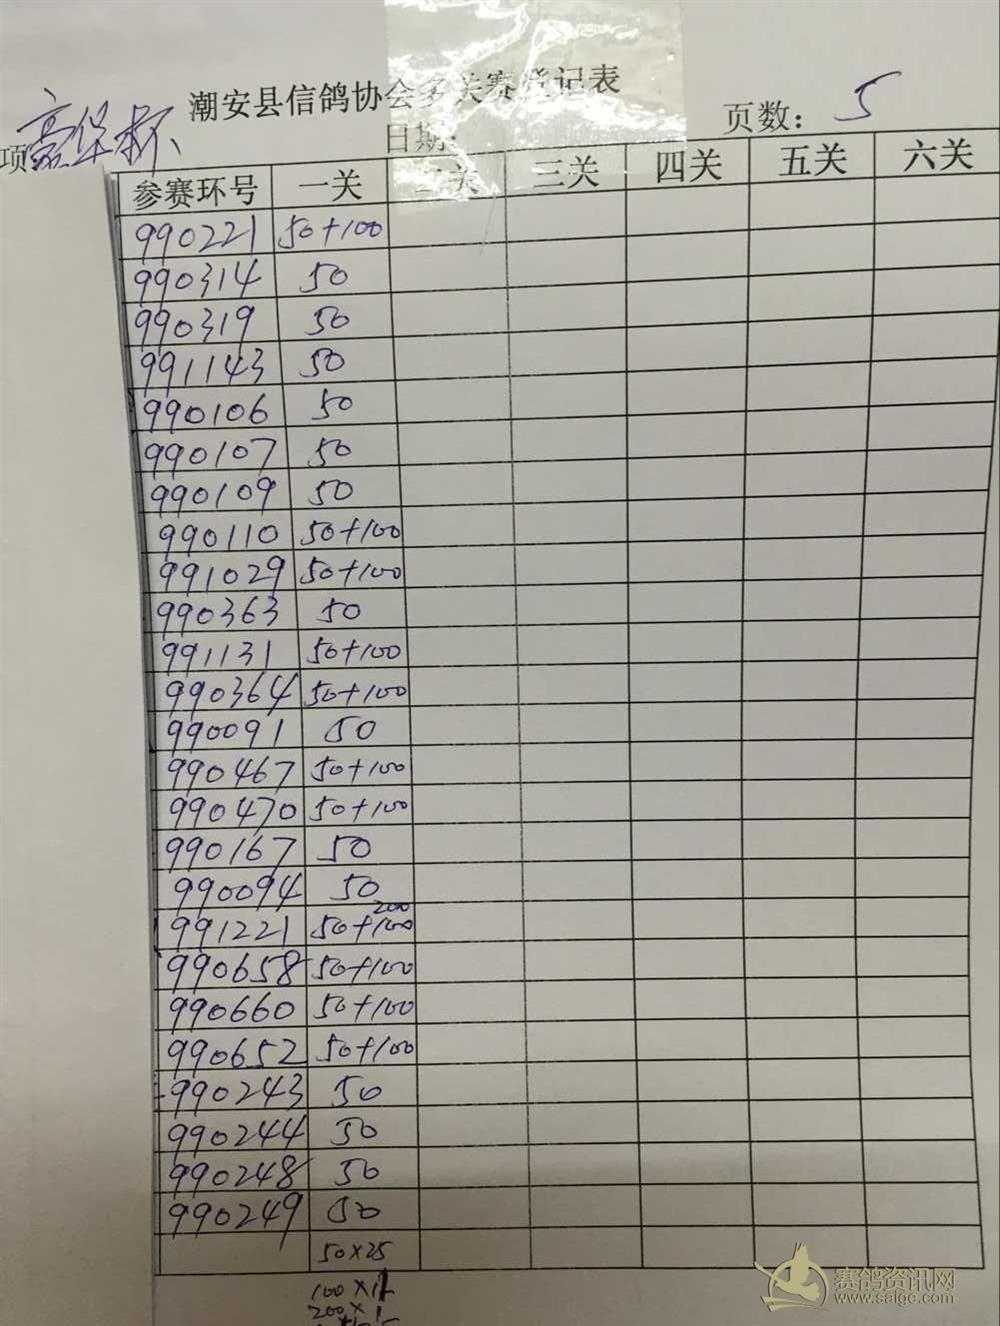 潮安县信鸽协会多关赛登记表
项 豪华杯
日期:
页数: 5
参赛环号 一关 二关 三关 四关 五关 六关
990221 50+100
990314 50
990319 50
991143 50
990106 50
990107 50
990109 50
990110 50+100
991029 50+100
990363 50
991131 50+100
990364 50+100
990091 50
990467 50+100
990470 50+100
990167 50
990094 50
200
991221 50+100
990658 50+100
990660 50+100
990652 50+100
990243 50
990244 50
990248 50
990249 50
50×25
100×11
200×1
赛鸽资讯网
www.saige.com